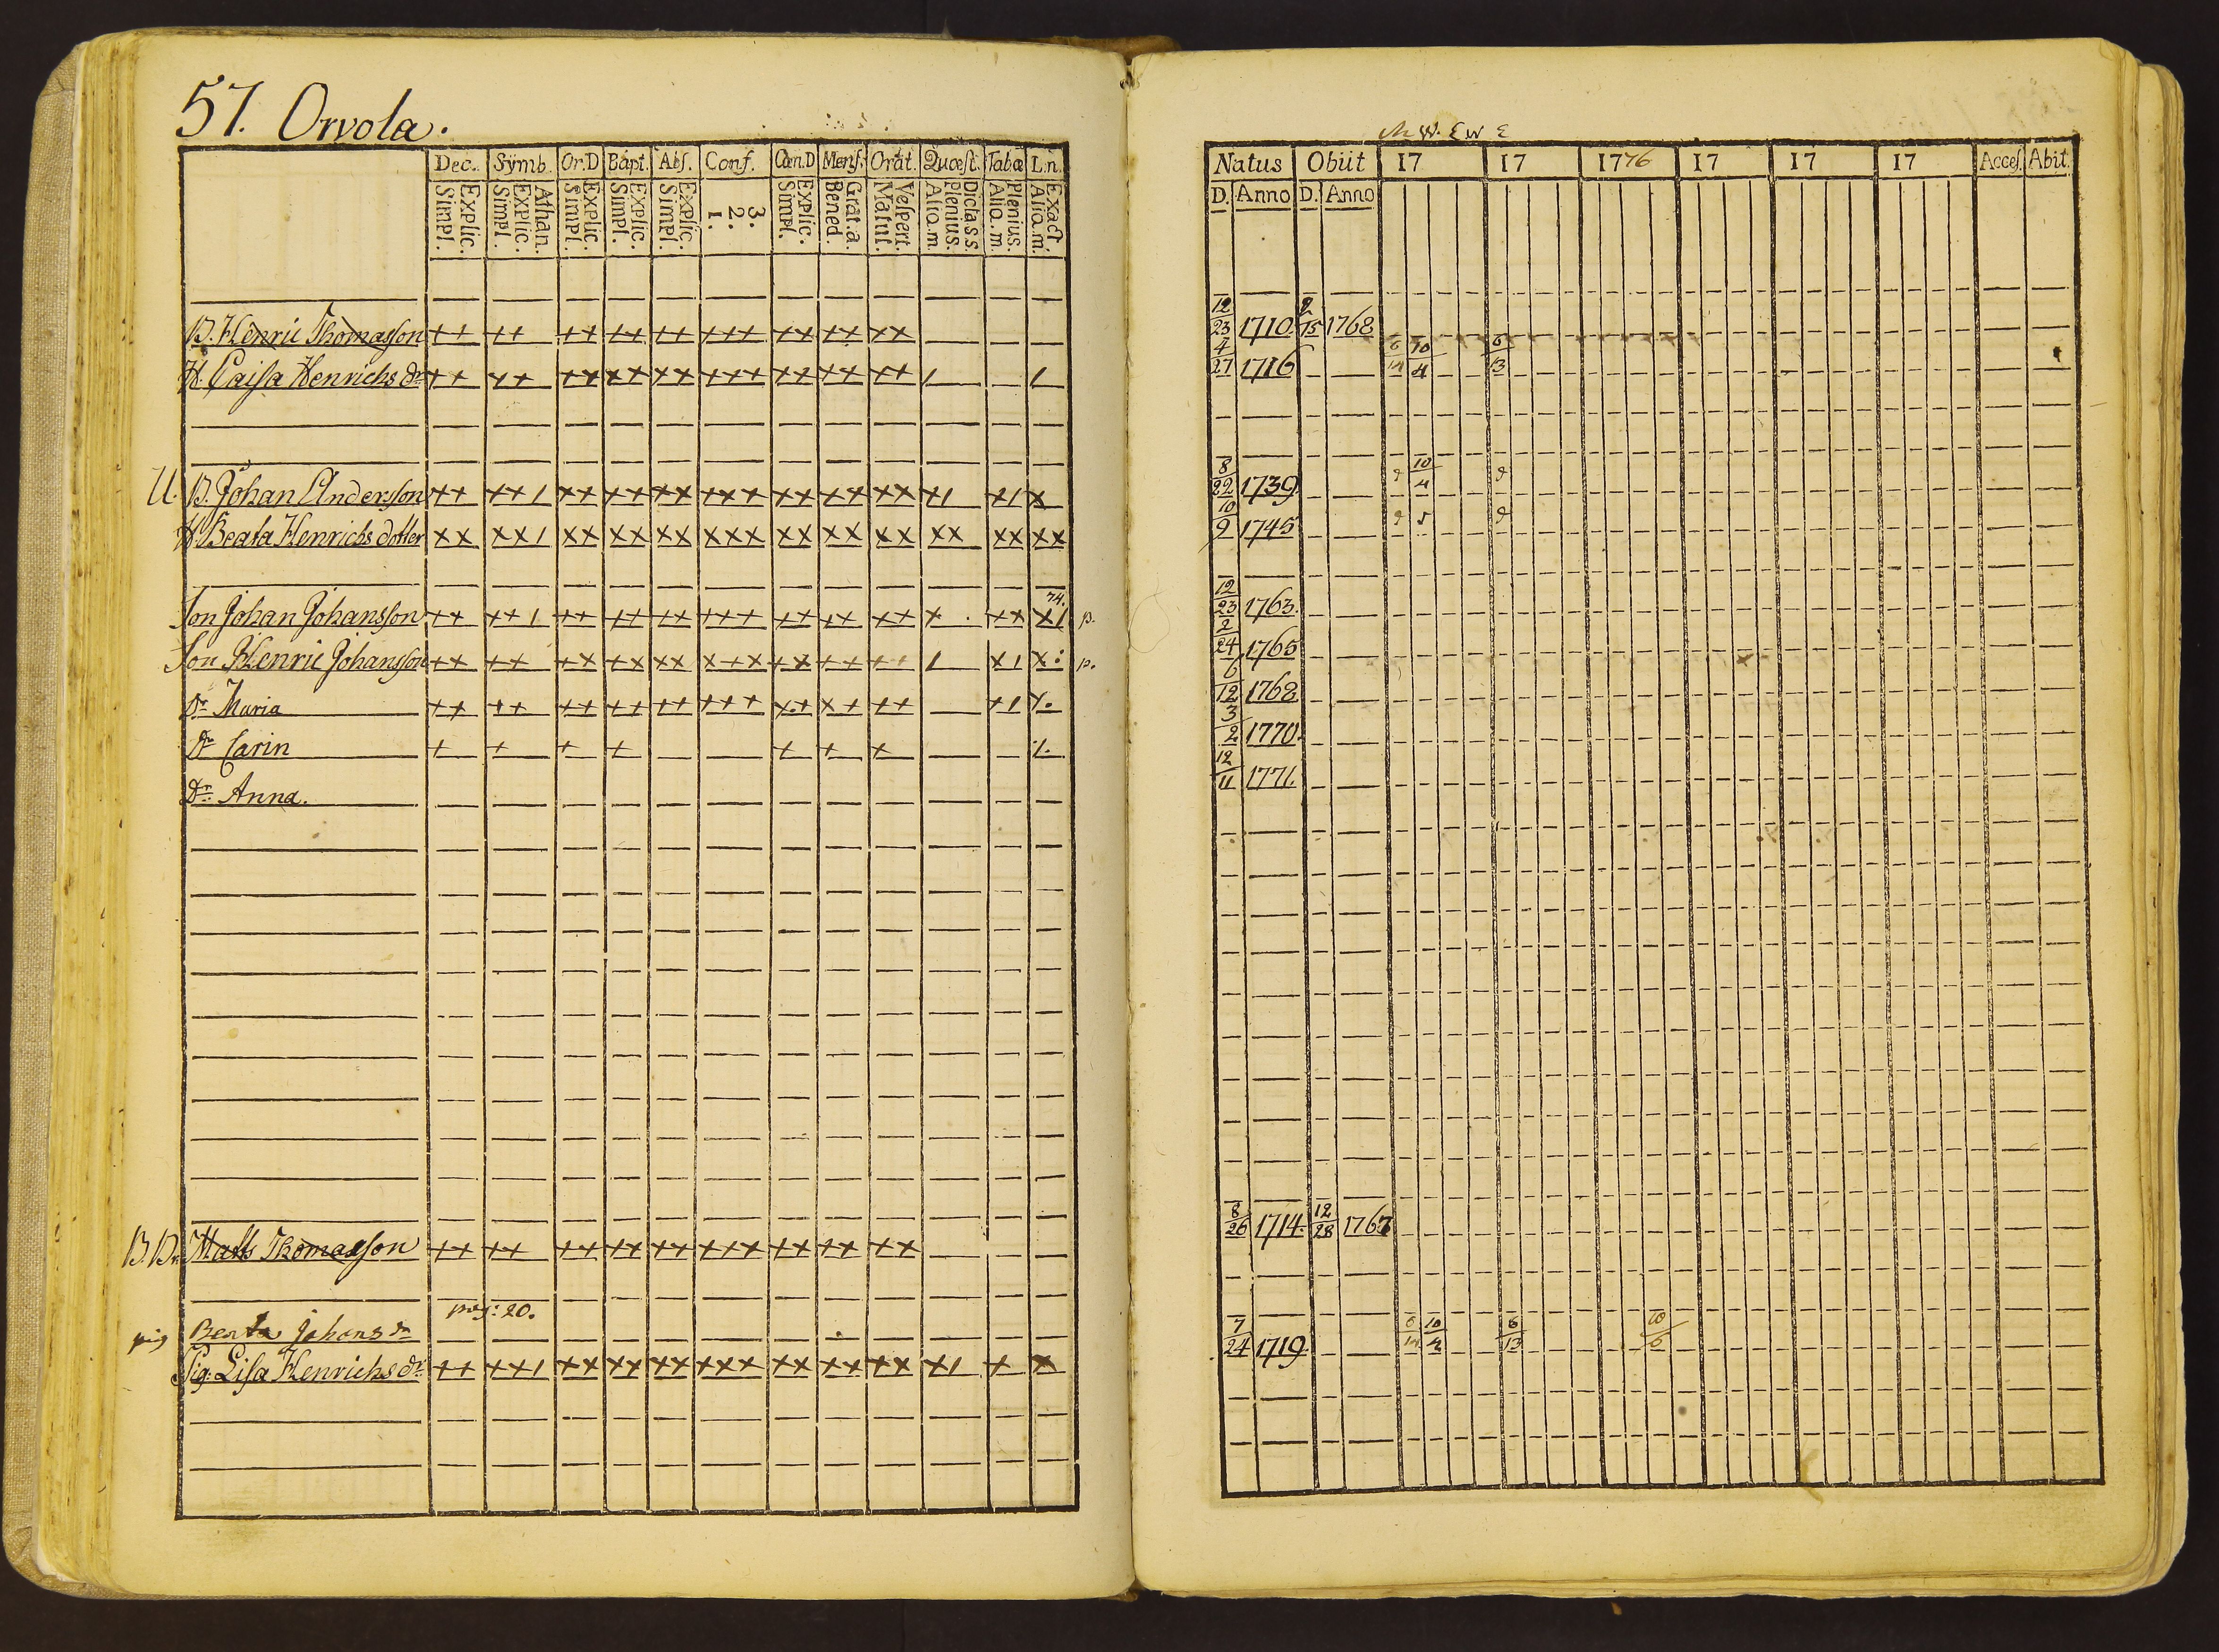 57. Orvola.
Dec. Symb. Or.D Bapt. Abs. Conf. Cœn.D Mens. Orat. Quæst. Tabæ L.n.
Explic. Simpl. Athan. Explic. Simpl. Explic. Simpl. Explic. Simpl. Explic. Simpl. 3. 2. 1. Explic. Simpl. Grat.a. Bened. Vespert. Matut. Dicta s s. Plenius. Aliq.m. Plenius. Aliq.m. Exact. Aliq.m.
B. Henric Thomasson ++ ++ ++ ++ ++ +++ ++ ++ ××
H. Caisa Henrichs dr ++ ++ ++ ++ ++ +++ ++ ++ ++ / /
U. B. Johan Andersson ++ ++/ ++ ++ ++ +++ ++ ++ ×× ×/ ×/ ×
H. Beata Henrichs dotter ×× ××/ ×× ×× ×× ××× ×× ×× ×× ×× ×× ××
74.
Son Johan Johansson ++ ++/ ++ ++ ++ +++ ++ ++ ++ × ×× ×/ p.
Son Henric Johansson ++ ++ ++ ++ ×× +++ ++ ++ ++ / ×/ ×: p.
Dr Maria ++ ++ ++ ++ ++ +++ ++ ++ ++ +/ ×.
Dr Carin + + + + + + +
Dr Anna.
B. Br. Matts Thomasson ++ ++ ++ ++ ++ +++ ++ ++ ××
pag: 20.
pig Beata Johans dr
Pig: Lisa Henrichs dr ++ ++/ ×× ×× ×× ××× ×× ×× ×× ×/ + ×
Natus Obiit 17 17 1776 17 17 17 Acces. Abit.
D. Anno D. Anno
12/23 1710 2/15 1768
4/27 1716 10/4 6/13
8/22 1739 10/4
10/9 1745
12/23 1763.
2/24 1765
6/12 1768
3/2 1770.
12/11 1771.
8/26 1714 12/28 1767
7/24 1719 10/4 6/13 10/6